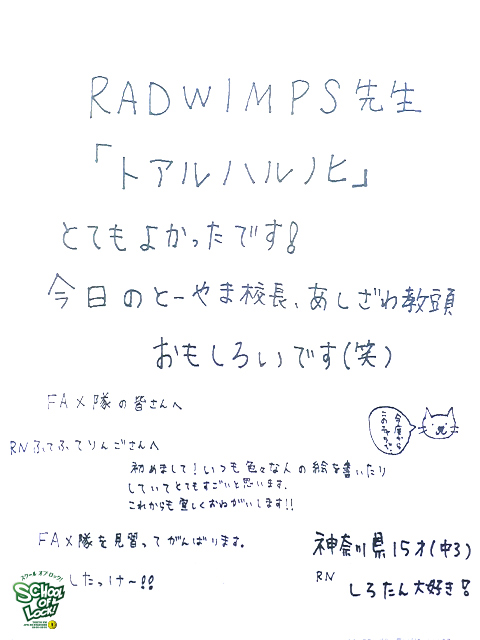 RADWIMPS先生
「トアルハルノヒ」
とてもよかったです!
今日のとーやま校長、あしざわ教頭
おもしろいです(笑)
FAX隊の皆さんへ
RNふてふてりんごさんへ
初めまして!いつも色々な人の絵を書いたり
していてとてもすごいと思います。
これからも宜しくおねがいします!!
FAX隊を見習ってがんばります。
したっけ〜!!
神奈川県15才(中3)
RN
しろたん大好き!
今度から
スクール オブ ロック!
SCHOOL
OF
LOCK!